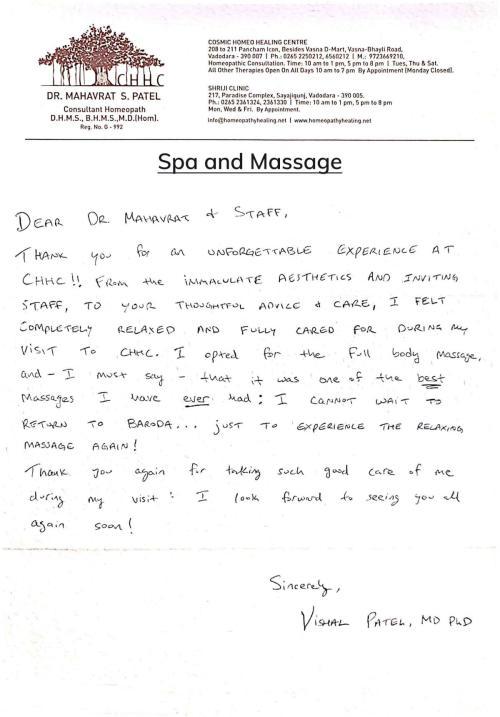 CHHC
DR. MAHAVRAT S. PATEL
Consultant Homeopath
D.H.M.S., B.H.M.S.,M.D.(Hom).
Reg. No. G - 992
COSMIC HOMEO HEALING CENTRE
208 to 211 Pancham Icon, Besides Vasna D-Mart, Vasna-Bhayli Road,
Vadodara - 390 007 | Ph.: 0265 2250212, 6560212 | M.: 9723669210,
Homeopathic Consultation. Time: 10 am to 1 pm, 5 pm to 8 pm | Tues, Thu & Sat.
All Other Therapies Open On All Days 10 am to 7 pm By Appointment (Monday Closed).
SHRIJI CLINIC
217, Paradise Complex, Sayajigunj, Vadodara - 390 005.
Ph.: 0265 2361324, 2361330 | Time: 10 am to 1 pm, 5 pm to 8 pm
Mon, Wed & Fri. By Appointment.
info@homeopathyhealing.net | www.homeopathyhealing.net
Spa and Massage
DEAR DR. MAHAVRAT & STAFF,
THANK you for an UNFORGETTABLE EXPERIENCE AT
CHHC!! FROM the IMMACULATE AESTHETICS AND INVITING
STAFF, TO YOUR THOUGHTFUL ADVICE & CARE, I FELT
COMPLETELY RELAXED AND FULLY CARED FOR DURING My
VISIT TO CHHC. I opted for the full body massage,
and - I must say - that it was one of the best
massages I have ever had: I CANNOT WAIT TO
RETURN TO BARODA... just TO EXPERIENCE THE RELAXING
MASSAGE AGAIN!
Thank you again for taking such good care of me
during my visit: I look forward to seeing you all
again soon!
Sincerely,
VISHAL PATEL, MD PhD